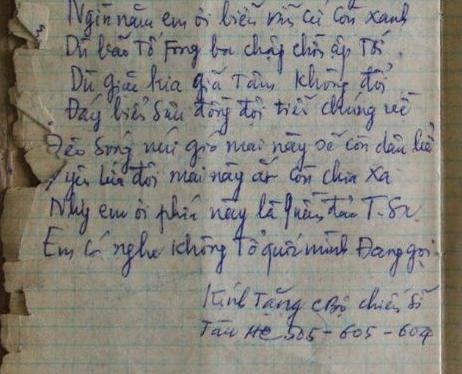 Ngìn năm em ơi biển vẫn cứ còn xanh
Dù bão tố Fong ba chập chồi ập tới.
Dù giặc kia giã tâm không đổi
Đáy biển sâu đồng đội tiếc chúng
sông núi gió mai này sẽ còn
yêu lứa đôi mai này ắt còn chia xa
Nhưng em ơi phía này là Quần đảo T.Sa
Em có nghe không tổ quốc mình Đang gọi.
Kính Tặng CBộ chiến sĩ
Tàu HQ 505 - 605 - 604